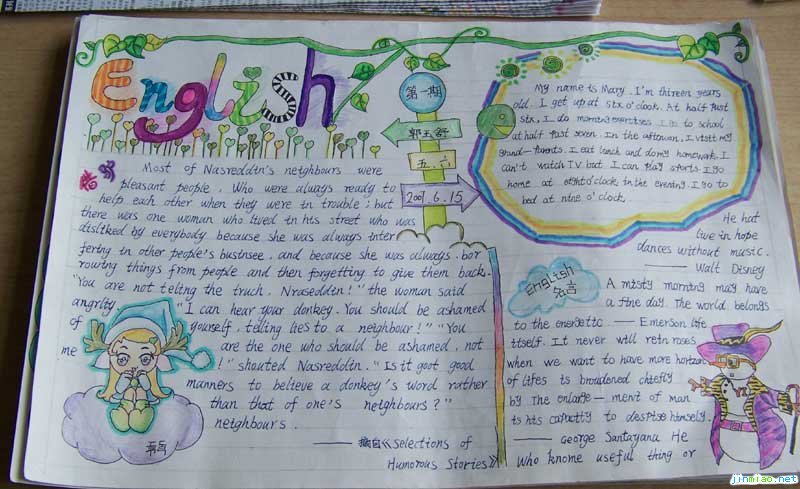 English
第一期
郭玉舒
五.六
2007.6.15
My name is Mary. I'm thireen years
old. I get up at six o'clock. At half past
six, I do morning exercises I go to school
at half past seven. In the afternoon, I visit my
grand-parents. I eat lunch and do my homework. I
can't watch TV but I can play sports I go
home at eight o'clock in the evening. I go to
bed at nine o'clock.
Most of Nasreddin's neighbours were
pleasant people. Who were always ready to
help each other when they were in trouble; but
there was one woman who lived in his street who was
disliked by everybody because she was always inter
fering in other people's bustnsee. and because she was always. bor
rowing things from people and then forgetting to give them back.
"You are not teling the truch, Nraseddin!" the woman said
angrlity "I can hear your donkey. You should be ashamed
of yourself, teling lies to a neighbour!" "You
are the one who should be ashamed, not
me !" shouted Nasreddin. "Is it goot good
manners to believe a donkey's word rather
than that of one's neighbours?"
neighbours.
—— 摘自《selections of
Humorous Stories》
He hat
live in hope
dances without music.
—— Walt Disney
English
名言
A misty morning may have
a fine day. The world belongs
to the energetic —— Emerson life
itself. It never will retn roses
when we want to have more horizon
of lifes is broudened chiefly
by the enlarge—ment of man
is his capacity to despise himsely.
—— George Santayanu He
who knome useful thing or
jinmiao.net